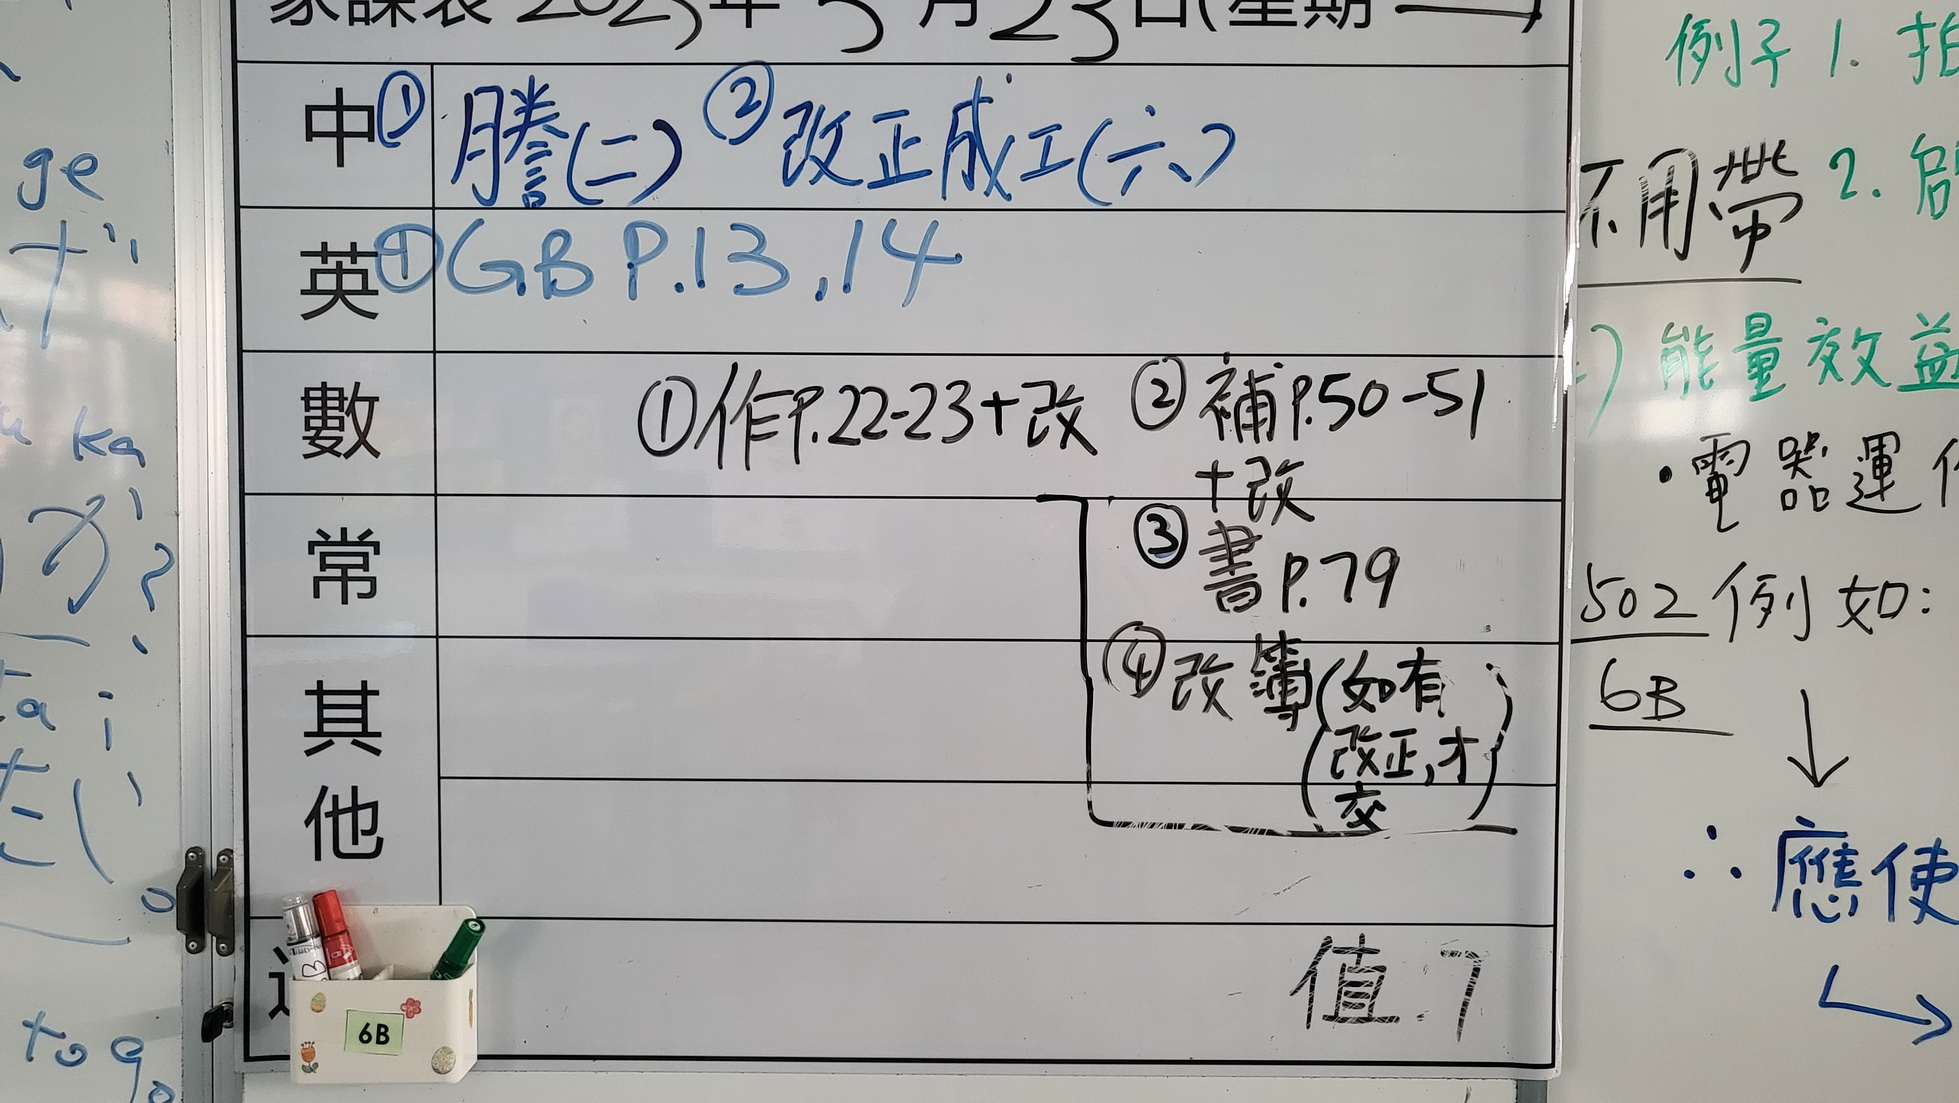 家課表 2023年 5月23日(星期二)
中 ① 謄(二) ② 改正成工(六)
英 ① G.B P.13,14
數 ①作P.22-23+改 ② 補P.50-51
+改
常 ③ 書P.79
其他 ④ 改簿(如有
改正,才
交)
值.7
6B
ge
ka
が
ta i
たい
to go
例子 1.
不用帶
2.
能量效益
・電器運
502 例如:
6B
↓
∴ 應使